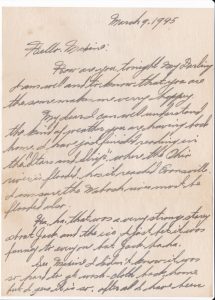 March 9, 1945
Hello Maxine:
How are you tonight My Darling
I am well and to know that you are
the same makes me very happy.
My dear I can well understand
the kind of weather you are having back
home. I have just finished reading in
the Stars and Stripes where the Ohio
river is flooded, has it reached Evansville
I am sure the Wabash river must be
flooded also.
Ha, ha, that was a very strange story
about Jack and the is a fact but it was
funny to every one but Jack ha ha.
Gee Maxine I didn't know it was
so hard to get wash-cloth back home
but I guess it is so, after all I have been